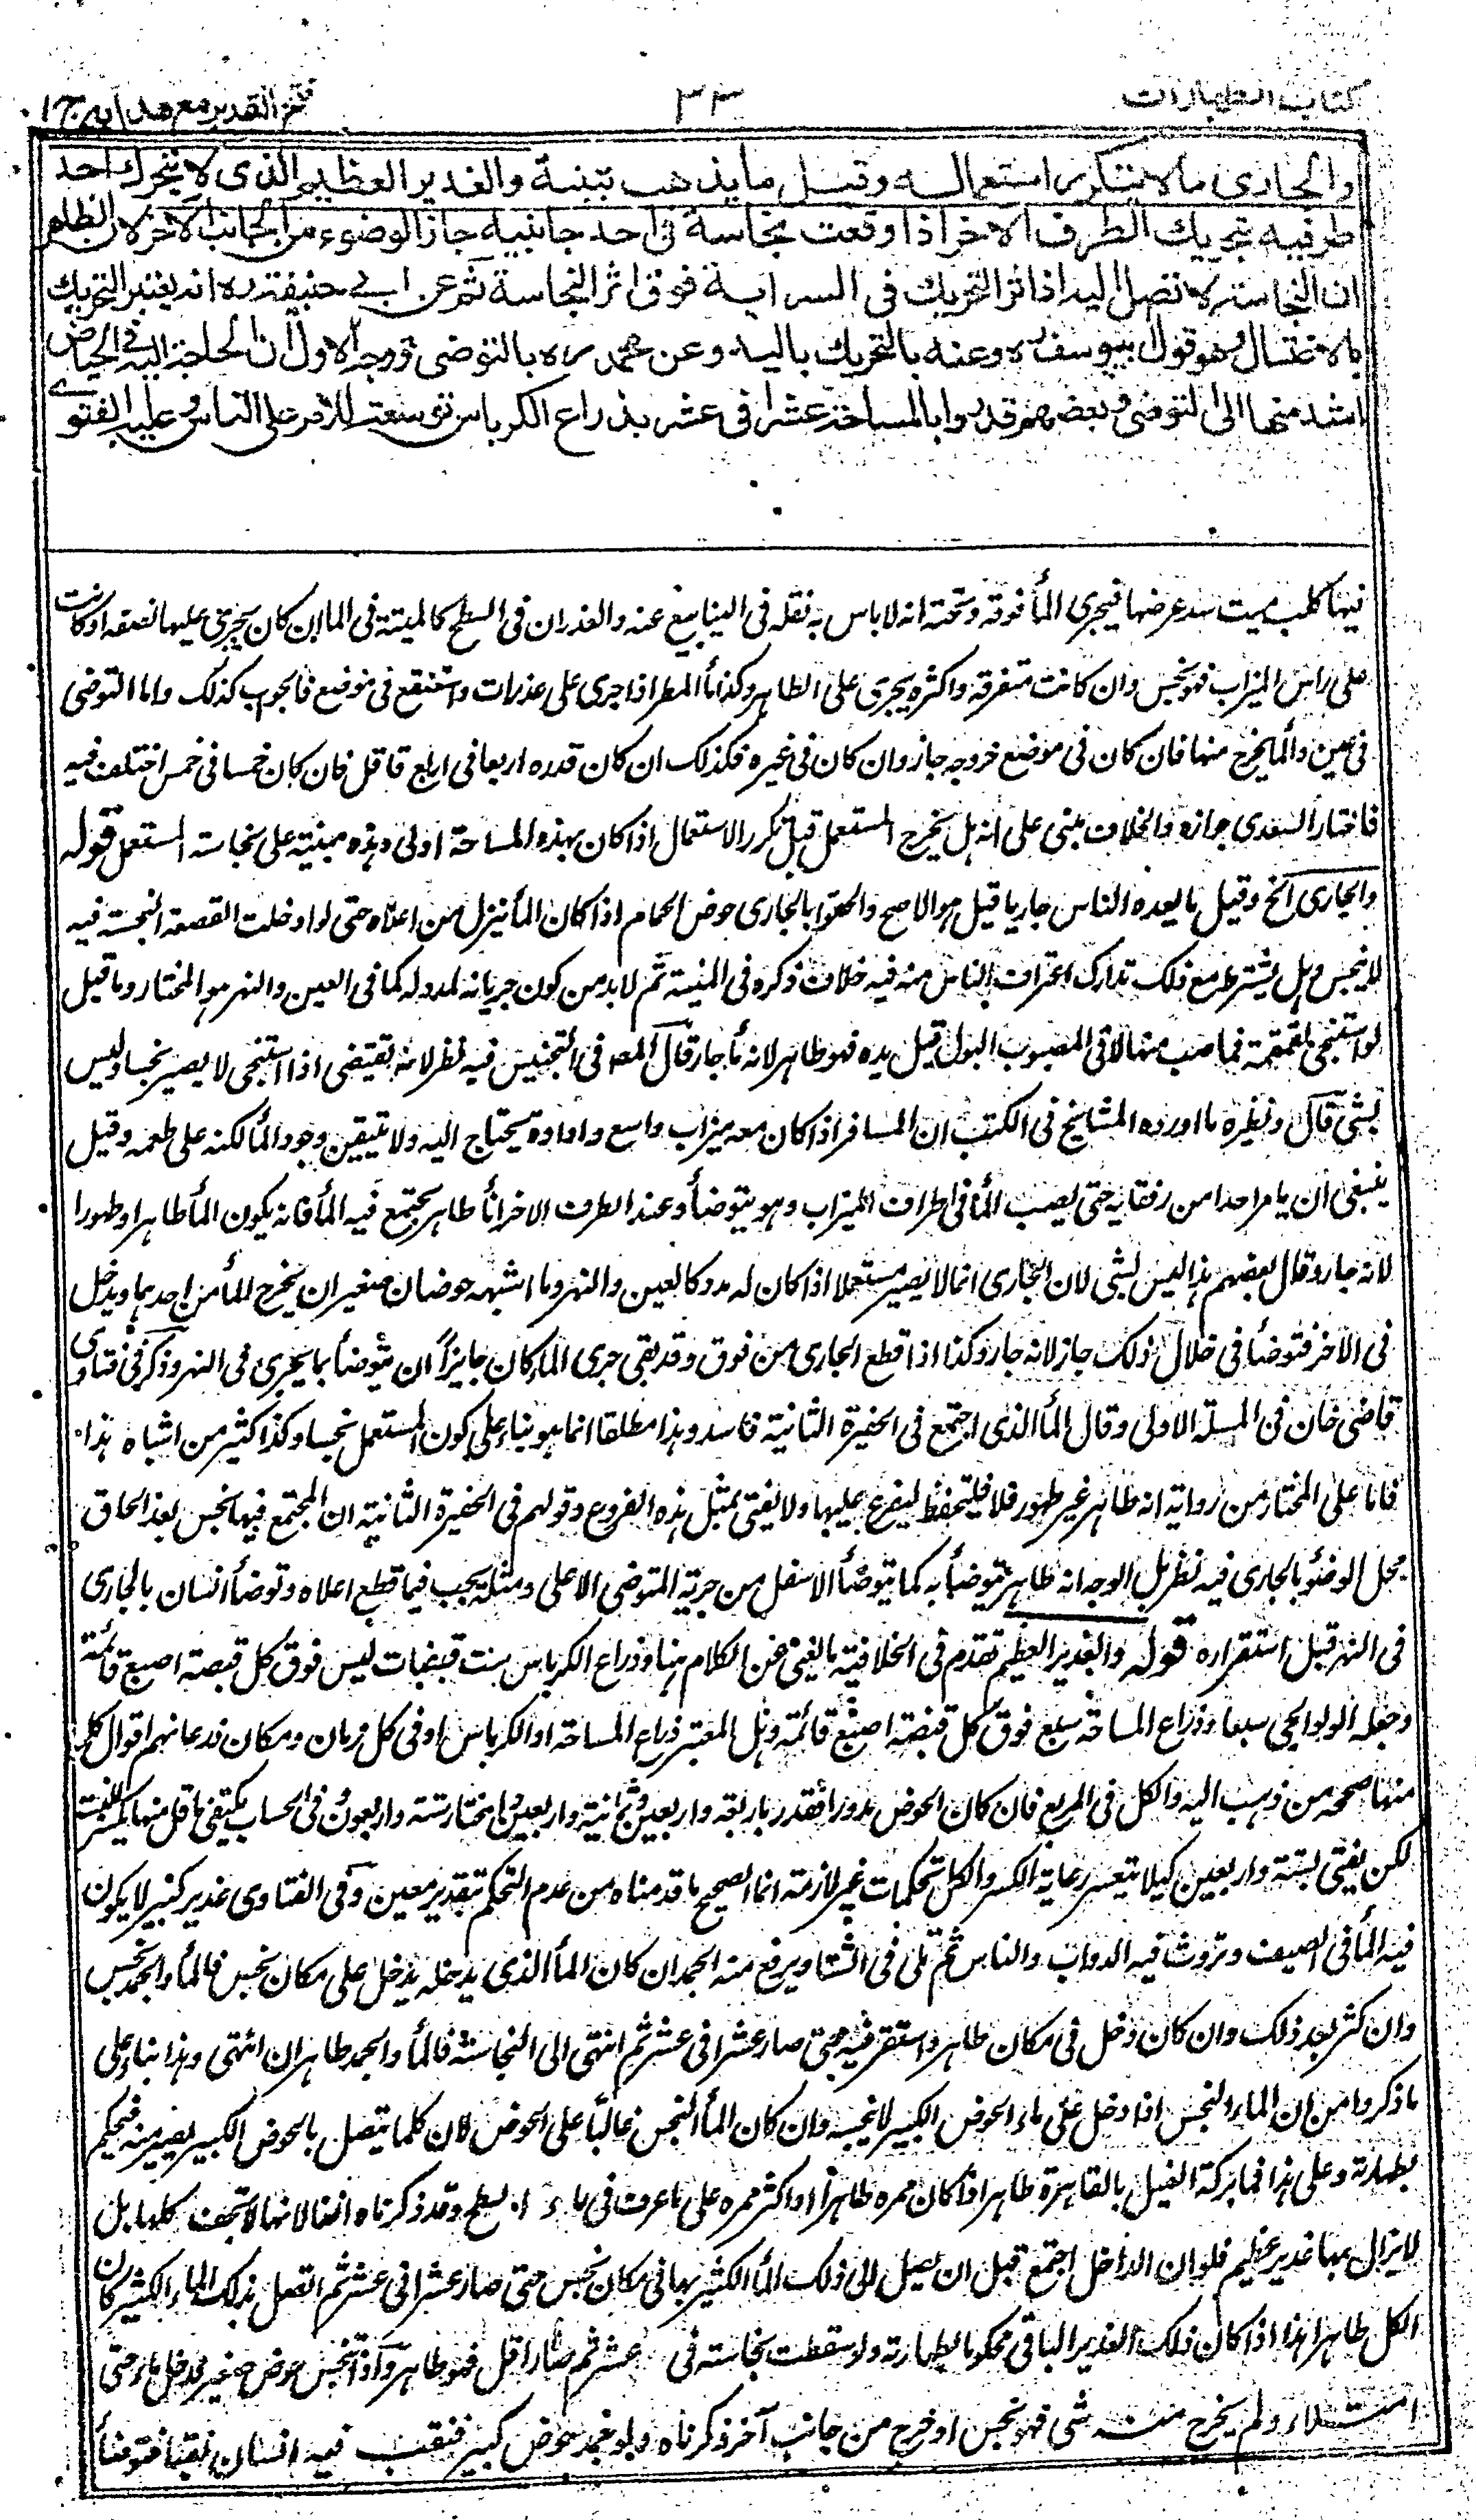 كتاب الطهارات
٣٣
فتح القدير مع هدايه ج ١
والجارى ما لا يتكرر استعماله وقيل ما يذهب بتبنة والغدير العظيم الذى لا يتحرك احد
طرفيه بتحريك الطرف الاخر اذا وقعت نجاسة فى احد جانبيه جاز الوضوء من الجانب الاخر لان الظاهر
ان النجاسة لا تصل اليه اذ اثر التحريك فى السراية فوق اثر النجاسة ثم عن ابى حنيفة ره انه يعتبر التحريك
بالاغتسال وهو قول ابي يوسف ره وعنه بالتحريك باليد وعن محمد ره بالتوضى ووجه الاول ان الحاجة اليه فى الحياض
اشد منها الى التوضى وبعضهم قدروا بالمساحة عشرا فى عشر بذراع الكرباس توسعة للامر على الناس وعليه الفتوى
فيها كلب ميت سد عرضها فيجرى الماء فوقه وتحته انه لا باس به نقله فى الينابيع عنه والعذران فى السطح كالميتة فى الماء ان كان يجرى عليها نصفه او كانت
على راس الميزاب فهو نجس وان كانت متفرقة واكثره يجرى على الطاهر وكذا ماء المطر اذا جرى على عذرات واستنقع فى موضع فالجواب كذلك واما التوضى
فى عين والماء يخرج منها فان كان فى موضع خروجه جاز وان كان فى غيره فكذلك ان كان قدره اربعا فى اربع فاقل فان كان خمسا فى خمس اختلف فيه
فاختار السغدى جوازه والخلاف مبنى على انه هل يخرج المستعمل قبل تكرر الاستعمال اذا كان بهذه المساحة اولى وهذه مبنية على نجاسة المستعمل قوله
والجارى الخ وقيل ما يعده الناس جاريا قيل هو الاصح والحقوا بالجارى حوض الحمام اذا كان الماء ينزل من اعلاه حتى لو ادخلت القصعة النجسة فيه
لا ينجس وهل يشترط مع ذلك تدارك اغتراف الناس منه فيه خلاف ذكره فى المنية ثم لا بد من كون جريانه لمدد له كما فى العين والنهر هو المختار وما قيل
لو استنجى بقمقمة فما صب منها لاقى المصبوب البول قبل يده فهو طاهر لانه ماء جار قال المصنف فى التجنيس فيه نظر لانه يقتضى اذا استنجى لا يصير نجسا وليس
بشئ قال ونظيره ما اورده المشايخ فى الكتب ان المسافر اذا كان معه ميزاب واسع واداوة يحتاج اليه ولا يتيقن وجود الماء لكنه على طمعه وقيل
ينبغى ان يامر احدا من رفقائه حتى يصب الماء فى اطراف الميزاب وهو يتوضأ وعند الطرف الاخر اناء طاهر يجتمع فيه الماء فانه يكون الماء طاهرا وطهورا
لانه جار وقال بعضهم هذا ليس بشئ لان الجارى انما لا يصير مستعملا اذا كان له مدد كالعين والنهر وما اشبهه حوضان صغيران يخرج الماء من احدهما ويدخل
فى الآخر فتوضأ فى خلال ذلك جاز لانه جار وكذا اذا قطع الجارى من فوق وقد بقى جرى الماء كان جايزا ان يتوضأ بما يجرى فى النهر وذكر فى فتاوى
قاضى خان فى المسئلة الاولى وقال الماء الذى اجتمع فى الحفيرة الثانية فاسد وهذا مطلقا انما هو بناء على كون المستعمل نجسا وكذا كثير من اشباه هذا
فاما على المختار من رواية انه طاهر غير طهور فلا فليتحفظ ليفرع عليها ولا يفتى بمثل هذه الفروع وقولهم فى الحفيرة الثانية ان المجتمع فيها نجس بعد الحاق
محل الوضوء بالجارى فيه نظر بل الوجه انه طاهر يتوضأ به كما يتوضأ الاسفل من جرية المتوضى الاعلى ومثله يجب فيما قطع اعلاه وتوضأ انسان بالجارى
فى النهر قبل استقراره قوله والغدير العظيم تقدم فى الخلافية ما يغنى عن الكلام هنا وذراع الكرباس ست قبضات ليس فوق كل قبضة اصبع قائمة
وجعله الولوالجى سبعا وذراع المساحة سبع فوق كل قبضة اصبع قائمة وهل المعتبر ذراع المساحة او الكرباس او فى كل زمان ومكان ذرعانهم اقوال كل
منها صححه من ذهب اليه والكل فى المربع فان كان الحوض مدورا فقدر باربعة واربعين وثمانية واربعين والمختار ستة واربعون وفى الحساب يكتفى باقل منها بكسر للنسبة
لكن يفتى بستة واربعين كيلا يتعسر رعاية الكسر والكل تحكمات غير لازمة انما الصحيح ما قدمناه من عدم التحكم بتقدير معين وفى الفتاوى غدير كبير لا يكون
فيه الماء فى الصيف وتروث فيه الدواب والناس ثم يملى فى الشتاء ويرفع منه الجمد ان كان الماء الذى يدخله يدخل على مكان نجس فالماء والجمد نجس
وان كثر بعد ذلك وان كان دخل فى مكان طاهر واستقر فيه حتى صار عشرا فى عشر ثم انتهى الى النجاسة فالماء والجمد طاهران انتهى وهذا بناء على
ما ذكروا من ان الماء النجس اذا دخل على ماء الحوض الكبير لا ينجسه وان كان الماء النجس غالبا على الحوض لان كلما يتصل بالحوض الكبير يصير منه فيحكم
بطهارته وعلى هذا فماء بركة الفيل بالقاهرة طاهر اذا كان ممره طاهرا او اكثر ممره على ما عرف فى ماء السطح وقد ذكرناه آنفا لانها لا تجف كلها بل
لا يزال بها غدير عظيم فلو ان الداخل اجتمع قبل ان يصل الى ذلك الماء الكثير بها فى مكان نجس حتى صار عشرا فى عشر ثم اتصل بذلك الماء الكثير كان
الكل طاهرا هذا اذا كان ذلك الغدير الباقى محكوما بطهارته ولو سقطت نجاسة فى عشر ثم صار اقل فهو طاهر واذا تنجس حوض صغير فدخل ماء حتى
امتلاء ولم يخرج منه شى فهو نجس او خرج من جانب آخر ذكرناه ولو جمد حوض كبير فنقب فيه انسان نقبا فتوضأ